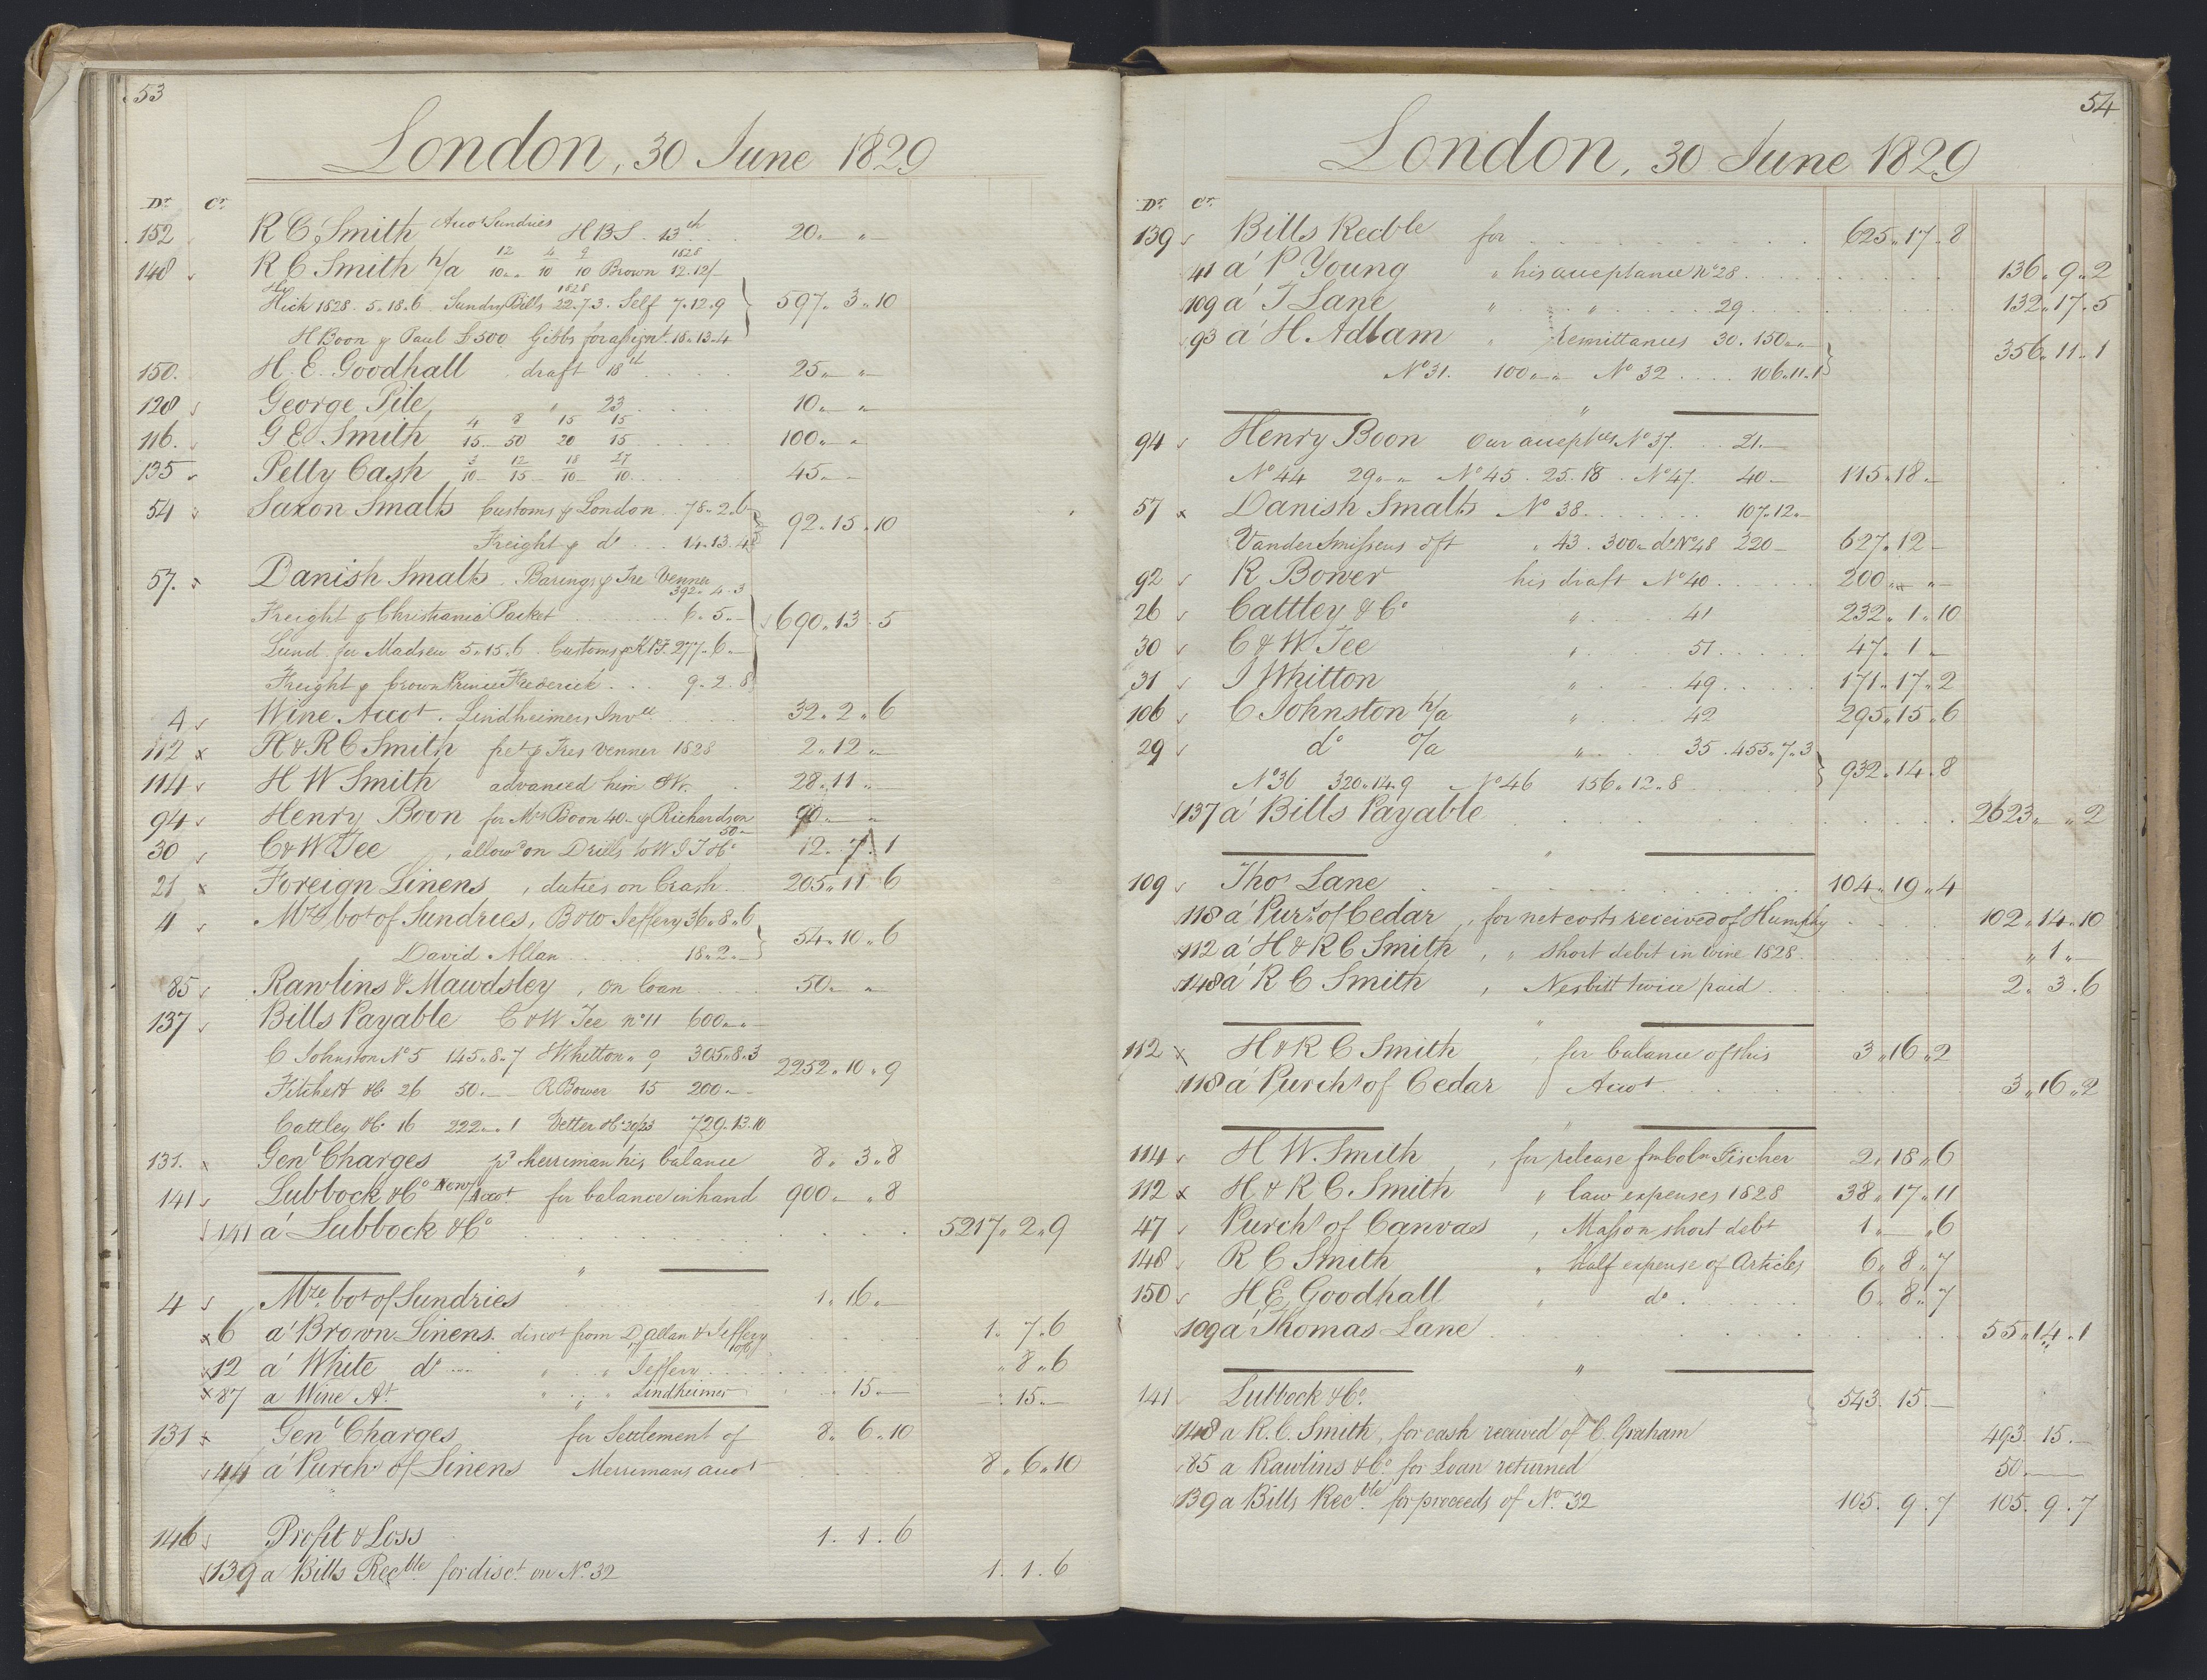 53
London, 30 June 1829
Dr. Cr.
152 R C Smith Acco Sundries HBS. 13th 20„ „
148 R C Smith h/a 12/10„ 4/10 9/10 Brown 1828 12.12/-
Hick 1828. 5.18.6 Sundry Bills 1828 22.7.3. Self 7.12.9 597„ 3„10
H Boon p Paul £500 Gibbs for assignt. 18„13„4
150. H. E. Goodhall draft 18th 25„ „
128 George Pile „ 23 10„ „
116. G E Smith 4/15 8/50 15/20 15/15 100„ „
135 Petty Cash 3/10 12/15 18/10 27/10 45„ „
54 Saxon Smalts Customs p London 78„2„6 92„15„10
Freight p do 14„13„4
57. Danish Smalts. Barings p Tre Venner 392„4„3
Freight p Christiania Packet 6„5„- 690„13„5
Lund for Madsen 5„15„6. Customs p KPF. 277„6„-
Freight p Crown Prince Frederick 9„2„8
4 Wine Accot. Lindheimers Invce 32„2„6
112 x H & R C Smith fet p Tres Venner 1828 2„12„
114 H W Smith advanced him 28„11„
94 Henry Boon for Mrs Boon 40„ p Richardson 50„ 90„ „
30 C & W Tee , allowd on Drills to W I T & Co 12„7„1
21 x Foreign Linens , duties on Crash 205„11„6
4 Mze bot of Sundries, B & W Jeffery 36„8„6 54„10„6
David Allan 18„2„-
85 Rawlins & Mawdsley , on loan 50„ „
137 Bills Payable C & W Tee No11 600„„
C Johnston No5 145„8„7 J Whitton „ 9 305„8„3 2252„10„9
Fitchett &Co 26 50„ R Bower 15 200„
Cattley &Co 16 222„„1 Vetter &Co 20/23 729.13.10
131. x Genl Charges pd Merriman his balance 8„3„8
141 Lubbock &Co New Accot for balance in hand 900„ „8
141 a' Lubbock &Co 5217„2„9
„
4 Mze. bot of Sundries 1„16„
x 6 a' Brown Linens. discot from D Allan & Jeffery 1„7„6
12 a' White do „ „ Jeffery „8„6
x 87 a Wine At „ „ Lindheimer 15„ 15„
131 x Genl Charges for Settlement of 8„6„10
44 a' Purchs of Linens Merrimans accot 8„6„10
146 Profit & Loss 1. 1. 6
139 a Bills Recble for disct. on No. 32 1. 1. 6
54
London, 30 June 1829
Dr. Cr.
139 Bills Recble for 625„17„8
41 a' P Young „ his acceptance No 28 136„9„2
109 a' T Lane „ „ 29 132„17„5
93 a' H Adlam „ Remittances 30. 150„„ 356„11„1
No31. 100„„ No 32 106„11„1
„
94 Henry Boon Our acceptces No 37. 21.-
No 44 29„„ No 45. 25.18. No 47. 40- 115„18„
57 x Danish Smalts No 38 107„12„
Vander Smissens dft „ 43. 300„ do No48 220- 627„12-
92 R. Bower his draft No 40 200„ „
26 Cattley & Co „ 41 232„1„10
30 C & W Tee „ 51 47„1„
31 J Whitton „ 49 171„17„2
106 C Johnston h/a „ 42 295„15„6
29 do o/a „ 35. 455„7„3
No 36 320„14„9 No 46 156„12„8 932„14„8
137 a' Bills Payable 2623„ „2
„
109 Thos Lane 104„19„4
118 a' Purs of Cedar , for net costs received of Humphy 102„14„10
112 a' H & R C Smith , „ Short debit in wine 1828 „1„
148 a' R C Smith , Nesbitt twice paid 2„3„6
„
112 x H & R C Smith , for balance of this 3„16„2
118 a' Purchs of Cedar Accot 3„16„2
„
114 H W. Smith , for release fm Fischer 2„18„6
112 x H & R C Smith „ law expenses 1828 38„17„11
47 Purchs of Canvas , Masson short debt 1„ „6
148 R C Smith „ Half expense of Articles 6„8„7
150 H E Goodhall „ do 6„8„7
109 a' Thomas Lane 55„14„1
„
141 Lubbock & Co. 543. 15.-
148 a R. C. Smith, for cash received of C. Graham 493. 15.-
85 a Rawlins & Co. for Loan returned 50.-
139 a Bills Recble for proceeds of No. 32 105. 9. 7 105. 9. 7